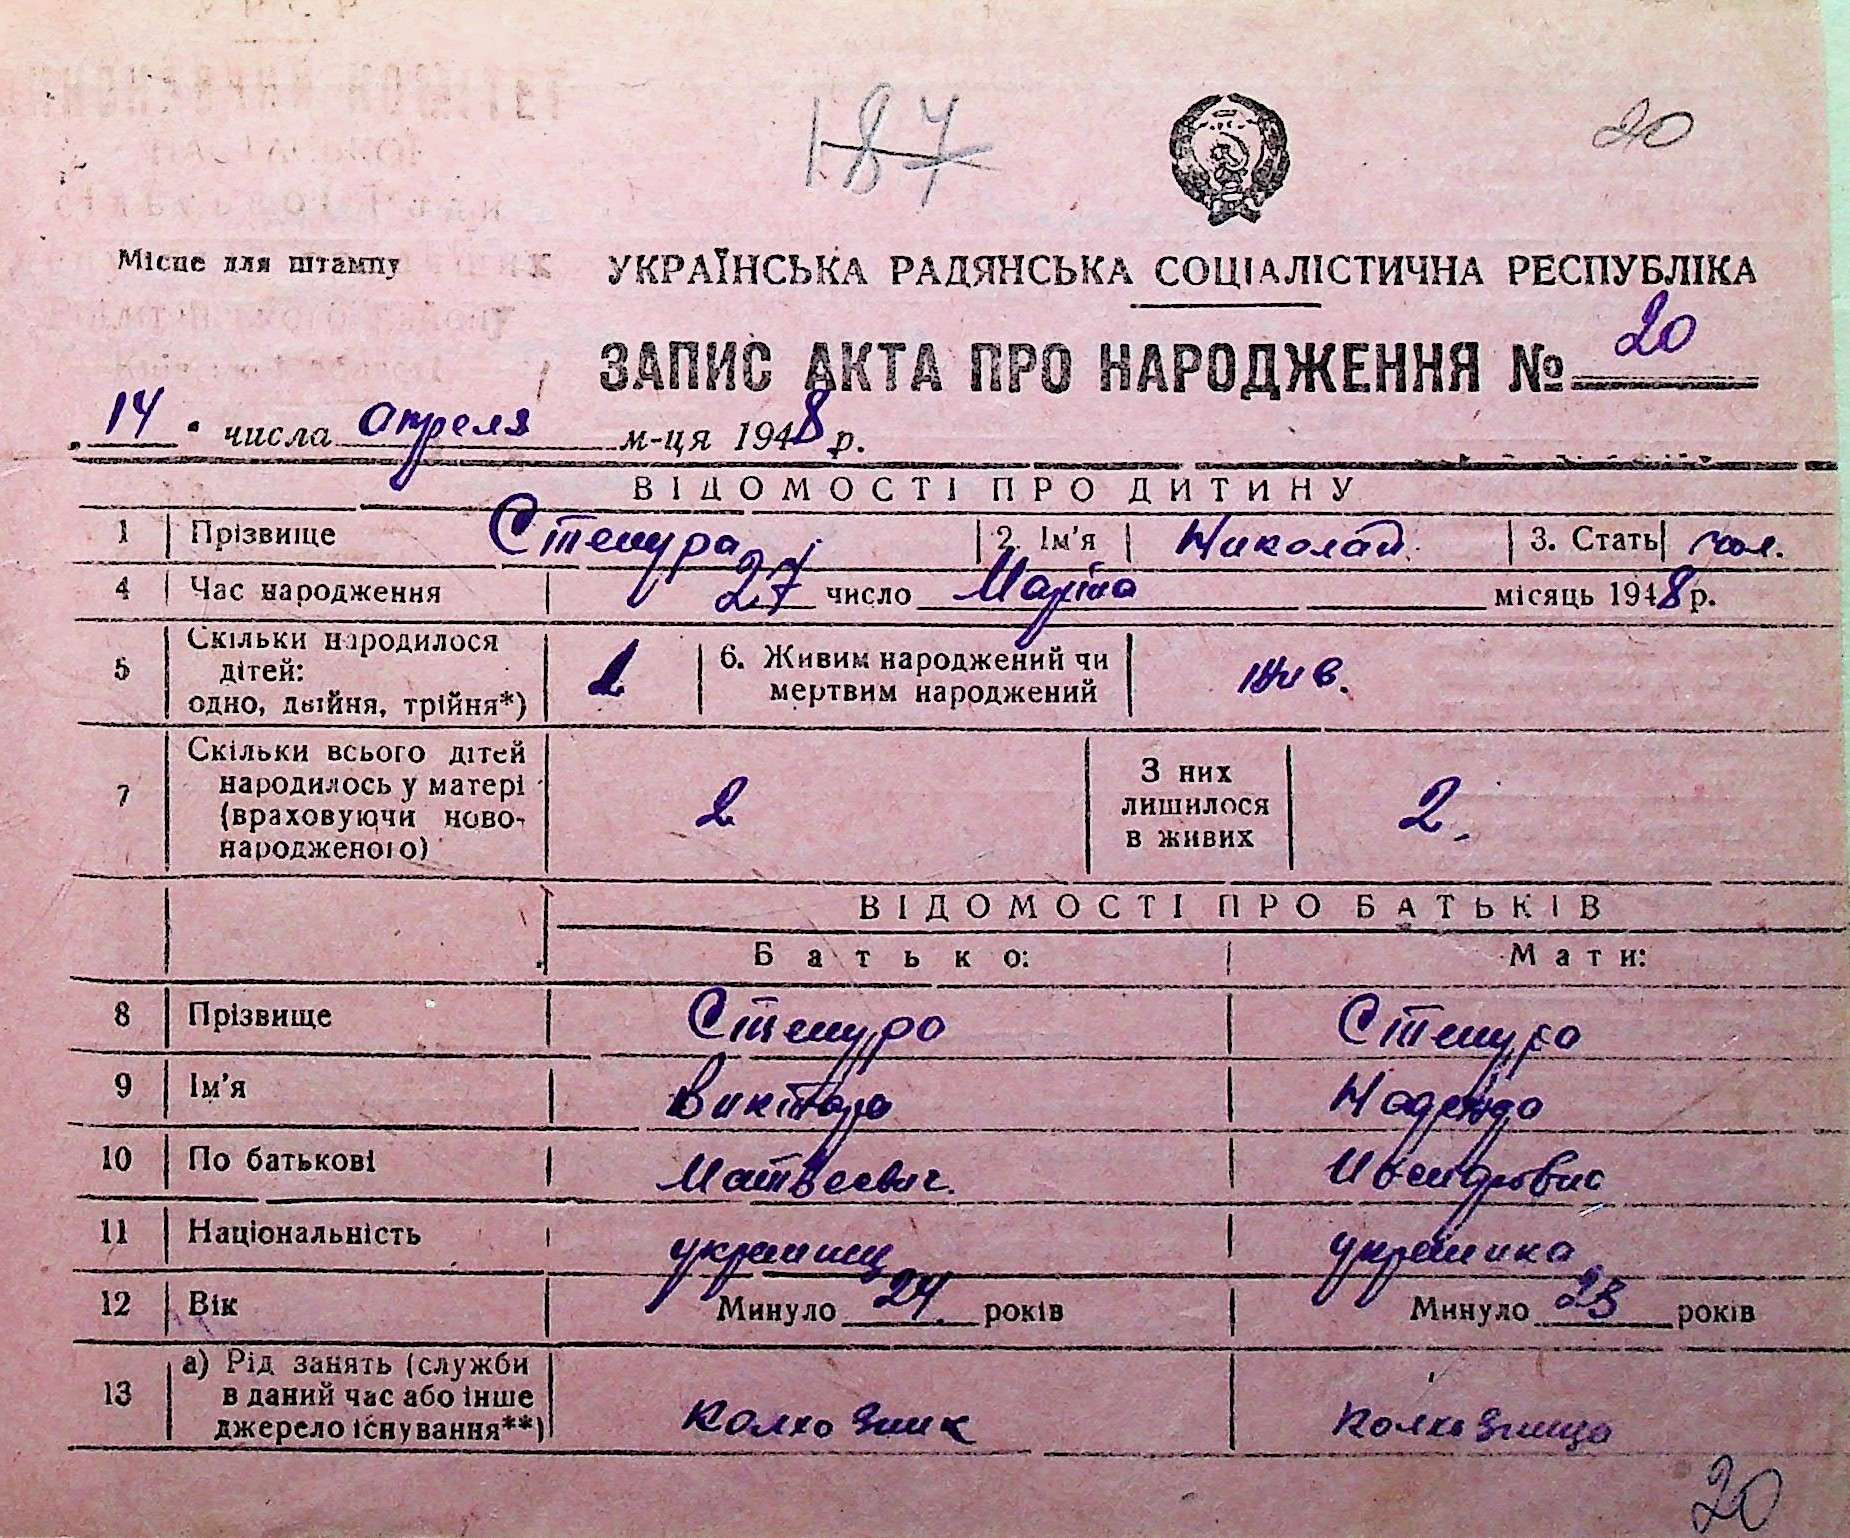 187
20
Місце для штампу
УКРАЇНСЬКА РАДЯНСЬКА СОЦІАЛІСТИЧНА РЕСПУБЛІКА
ЗАПИС АКТА ПРО НАРОДЖЕННЯ № 20
„14" числа апреля м-ця 1948 р.
ВІДОМОСТІ ПРО ДИТИНУ
1 Прізвище Стецура 2. Ім'я Николай 3. Стать
4 Час народження 27 число місяць 1948 р.
5 Скільки народилося дітей: одно, двійня, трійня*) 1 6. Живим народжений чи мертвим народжений жив.
7 Скільки всього дітей народилось у матері (враховуючи новонародженого) 2 З них лишилося в живих 2.
ВІДОМОСТІ ПРО БАТЬКІВ
Батько: Мати:
8 Прізвище Стецура Стецура
9 Ім'я Виктор Надежда
10 По батькові Матвеевич.
11 Національність украинец украинка
12 Вік Минуло 24 років Минуло 23 років
13 а) Рід занять (служби в даний час або інше джерело існування**) Колхозник Колхозница
20